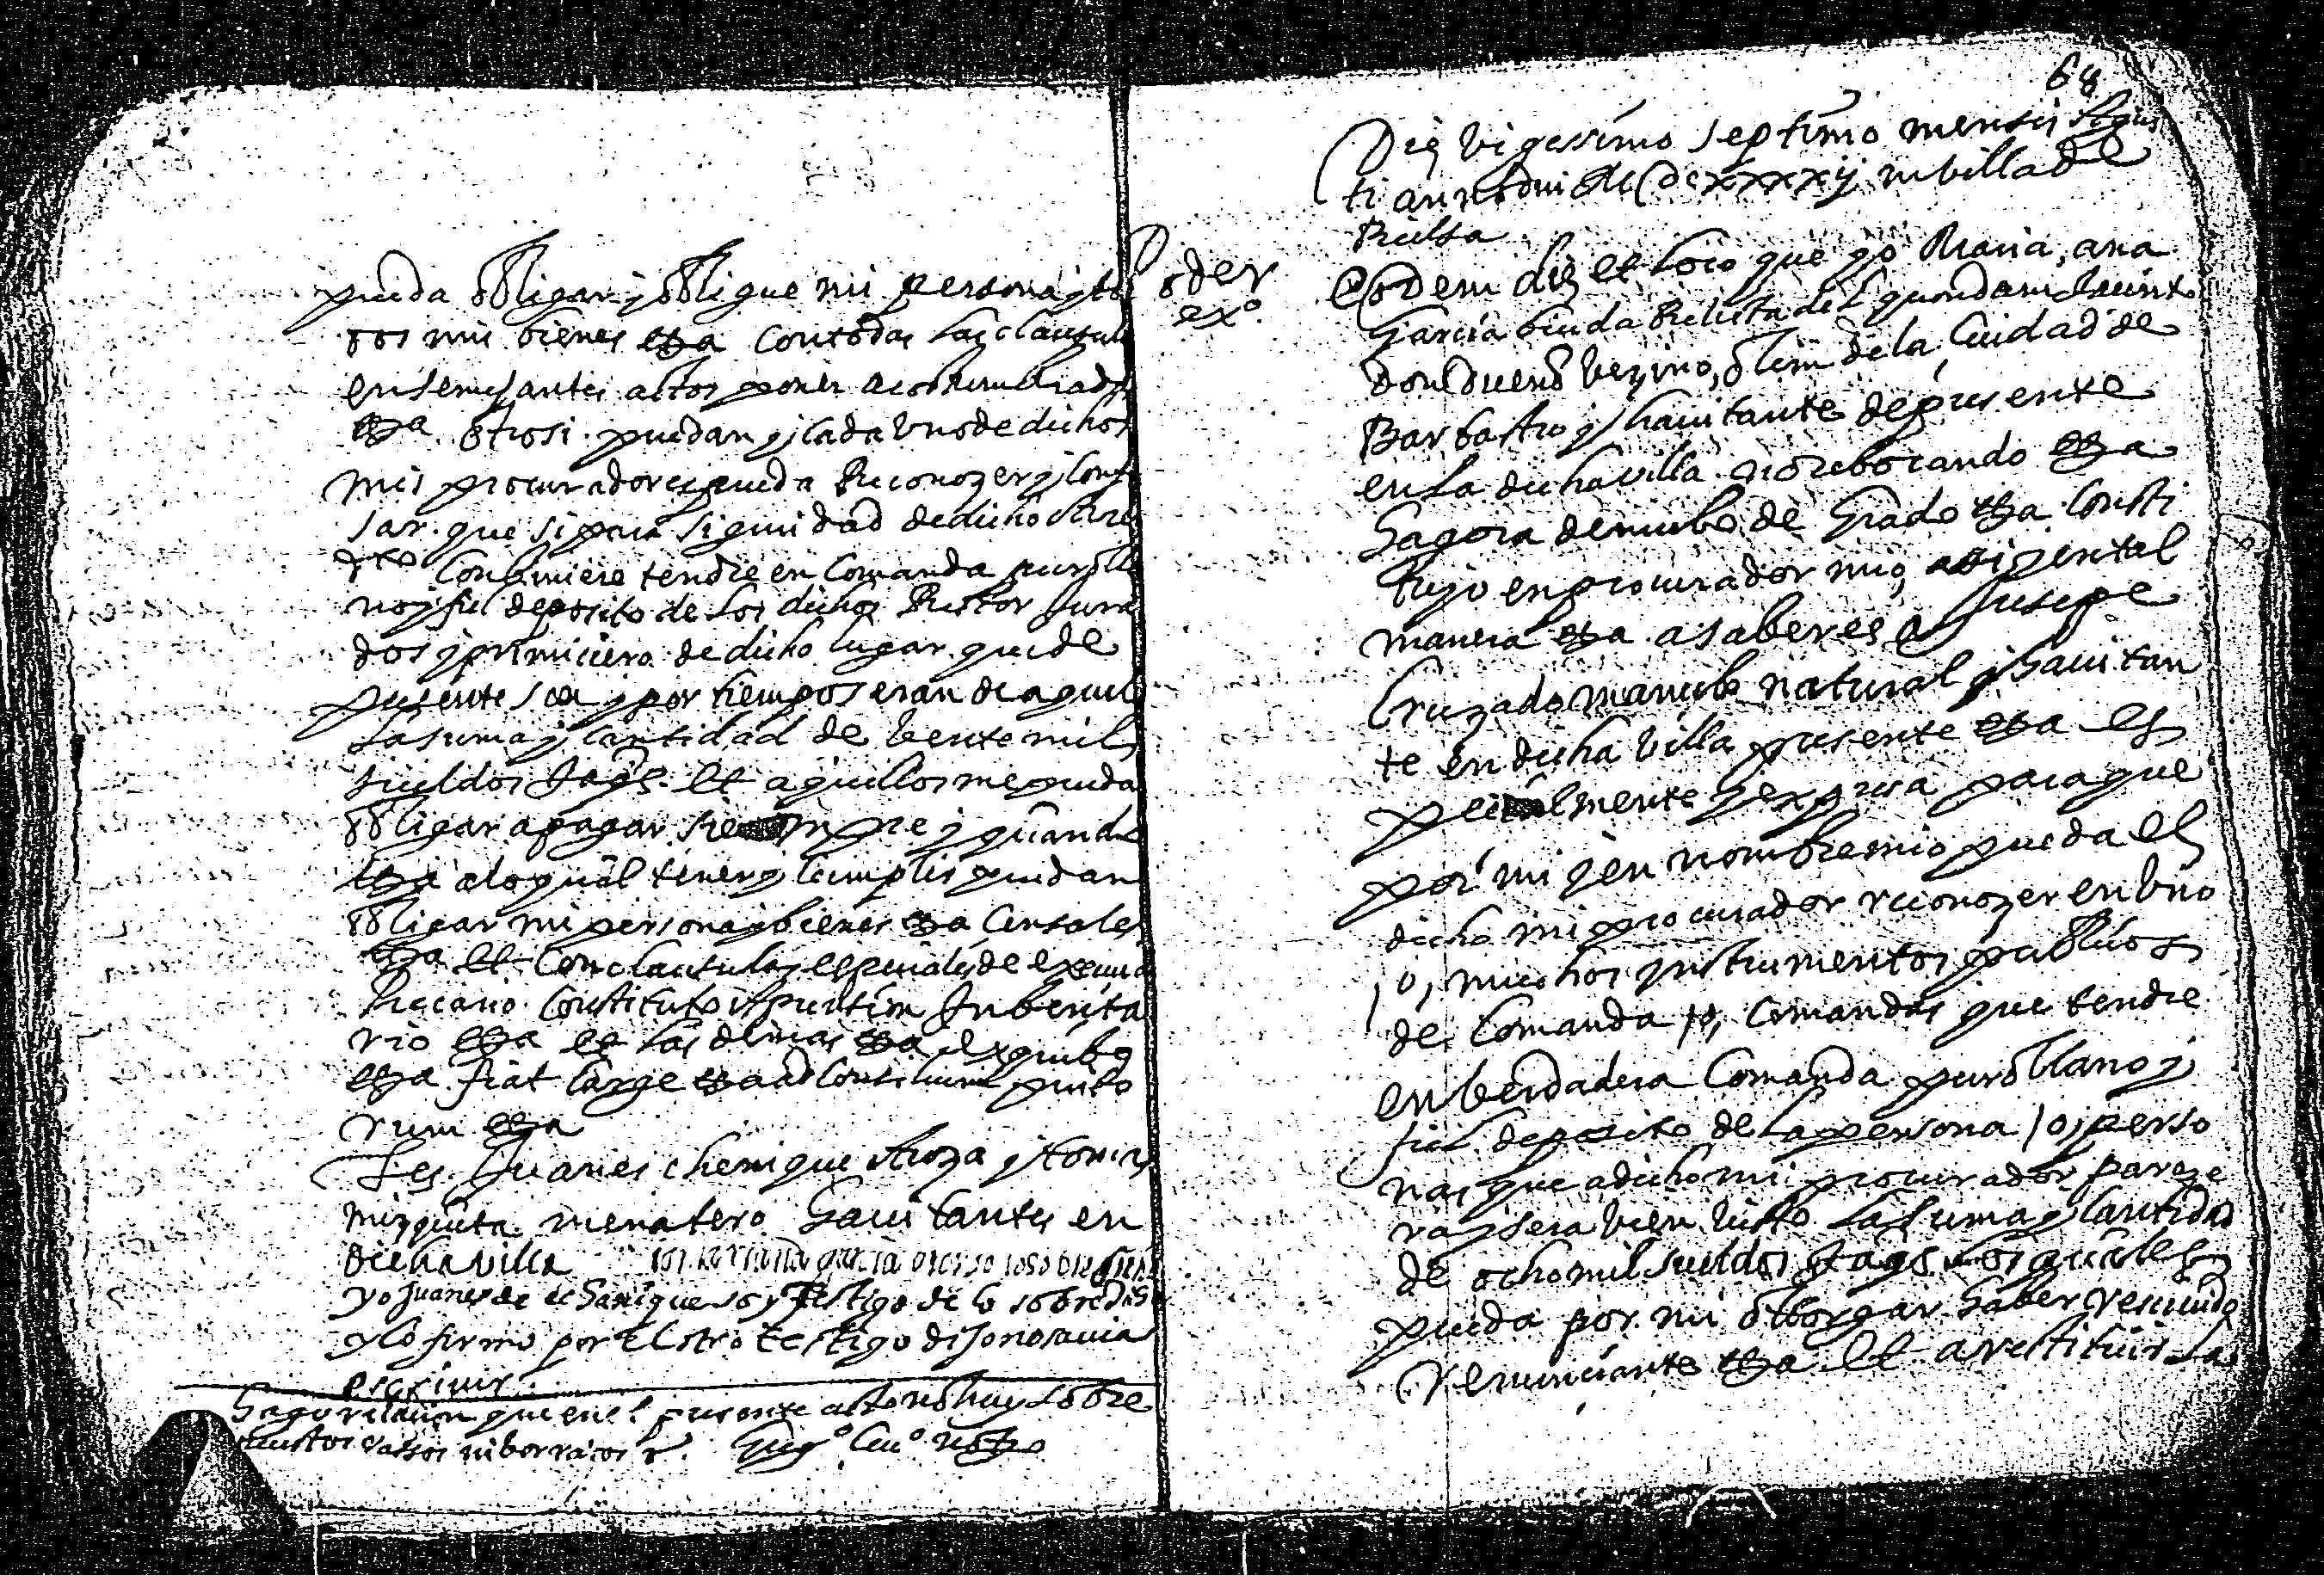 pueda obligar y obligue mi persona y to
dos mis bienes etca con todas las clausulas
en semejantes actos poner acostumbradas
etca otrosi puedan y cada vno de dichos
mis procuradores pueda Reconozer y confe
sar que si para siguridad de dicho
conbiniere tendre en comanda puro lla
no y fiel deposito de los dichos Retor Jura
dos y primiciero de dicho lugar que de
presente son y por tiempo seran de aquel
la suma y cantidad de bente mil
sueldos Jaqs et aquellos me pueda
obligar a pagar siempre y quando
etca a lo qual tener y cumplir puedan
obligar mi persona y bienes etca censales
etca et con clausulas especiales de
precario constituto apreension Inbenta
rio etca et las demas etca ex quibus
etca fiat large etca ad consilium perito
rum etca
Tes. Juanes chenique y tomas
mizqueta menatero hauitantes en
dicha villa
yo Juanes de soy testigo de lo sobredicho
y lo firmo por el otro testigo dijo no sauia
escriuir
hago relacion que en el presente acto no hay sobre
puestos rassos ni borrados

68
Die vigessimo septimo mensis Agus
ti anno dni MDCxxxxij in villa de
Rielsa
Poder
exo
Eodem die et loco que yo Maria, ana
Garcia biuda Relicta del quondam
don bezino, olim de la Ciudad de
Barbastro y hauitante de presente
en la dicha villa no rebocando etca
hagora de nuebo de Grado etca consti
tuyo en procurador mio, asi y en tal
manera etca a saber es a Jusepe
Cruzado mancebo natural y hauitan
te en dicha villa presente etca es
pecialmente y expresa para que
por mi y en nombre mio pueda el
dicho mi procurador reconozer en vno
,o, muchos ynstrumentos publicos
de comanda ,o, comandas que tendre
en berdadera comanda puro llano y
fiel deposito de la persona ,o, perso
nas que a dicho mi procurador pareze
ra y sera bien visto la suma y cantidad
de ocho mil sueldos Jaqs los quales
pueda por mi otorgar haber reciuido
renunciante etca et a restituir las